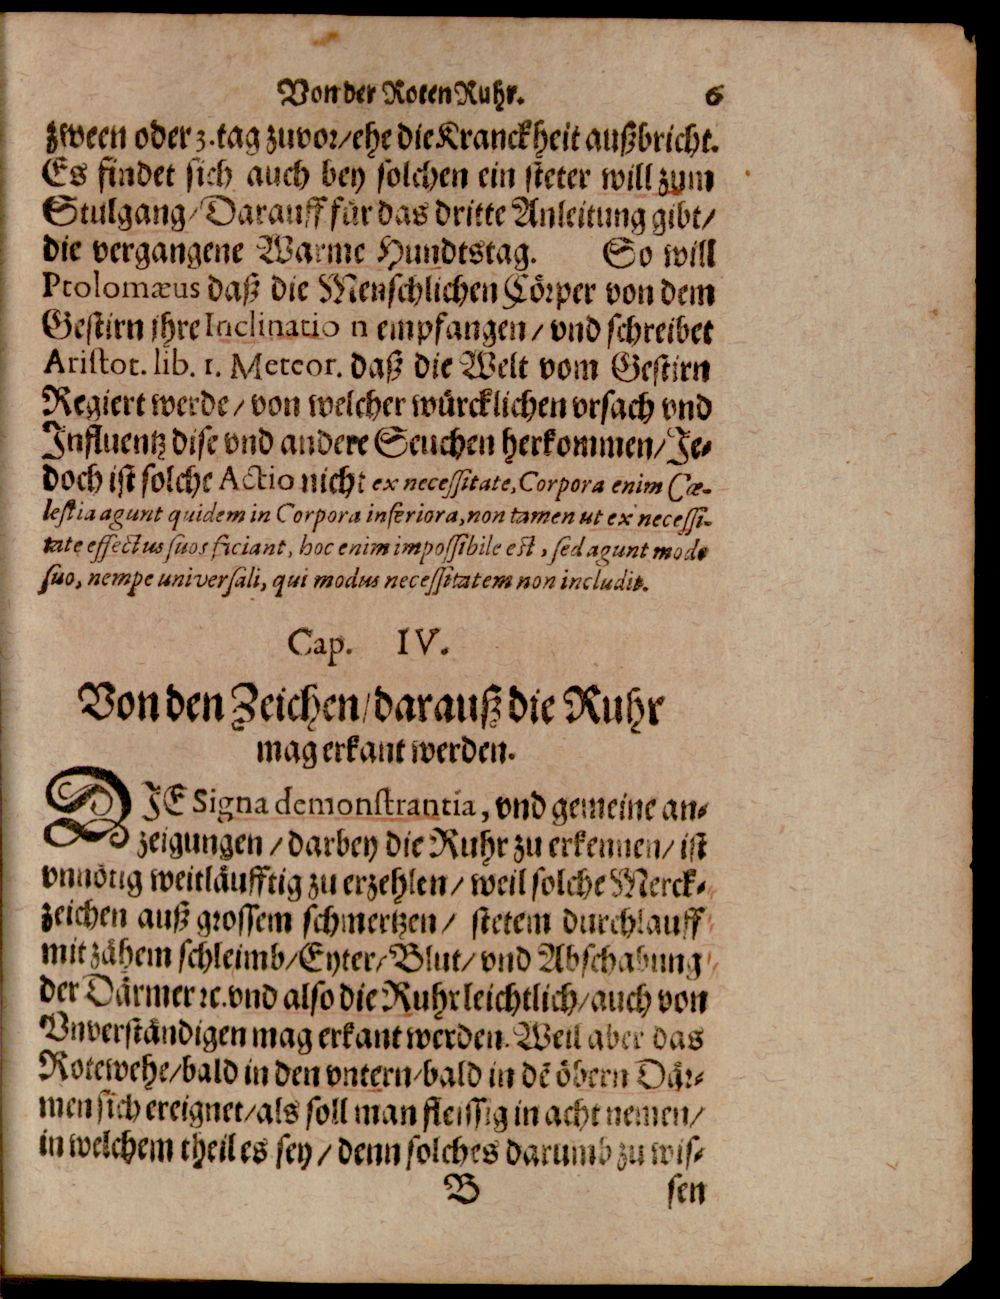 Von der Roten Ruhr. 6
zween oder 3. tag zuvor/ ehe die Kranckheit außbricht.
Es findet sich auch bey solchen ein steter will zum
Stulgang/ Darauff für das dritte Anleitung gibt/
die vergangene Warme Hundtstag. So will
Ptolomæus daß die Menschlichen Cörper von dem
Gestirn ihre Inclinatio n empfangen/ vnd schreibet
Aristot. lib. 1. Meteor. daß die Welt vom Gestirn
Regiert werde/ von welcher würcklichen vrsach vnd
Influentz dise vnd andere Seuchen herkommen/ Je-
doch ist solche Actio nicht ex necessitate, Corpora enim Cæ-
lestia agunt quidem in Corpora inferiora, non tamen ut ex necessi-
tate effectus suos ficiant, hoc enim impossibile est, sed agunt modo
suo, nempe universali, qui modus necessitatem non includit.
Cap. IV.
Von den Zeichen/ darauß die Ruhr
mag erkant werden.
DJE Signa demonstrantia, vnd gemeine an-
zeigungen/ darbey die Ruhr zu erkennen/ ist
vnnötig weitläufftig zu erzehlen/ weil solche Merck-
zeichen auß grossem schmertzen/ stetem durchlauff
mit zähem schleimb/ Eyter/ Blut/ vnd Abschabung
der Därmer ꝛc. vnd also die Ruhr leichtlich/ auch von
Vnverständigen mag erkant werden. Weil aber das
Rotewehe/ bald in den vntern/ bald in dē öbern Där-
men sich ereignet/ als soll man fleissig in acht nemen/
in welchem theil es sey/ denn solches darumb zu wis-
B sen